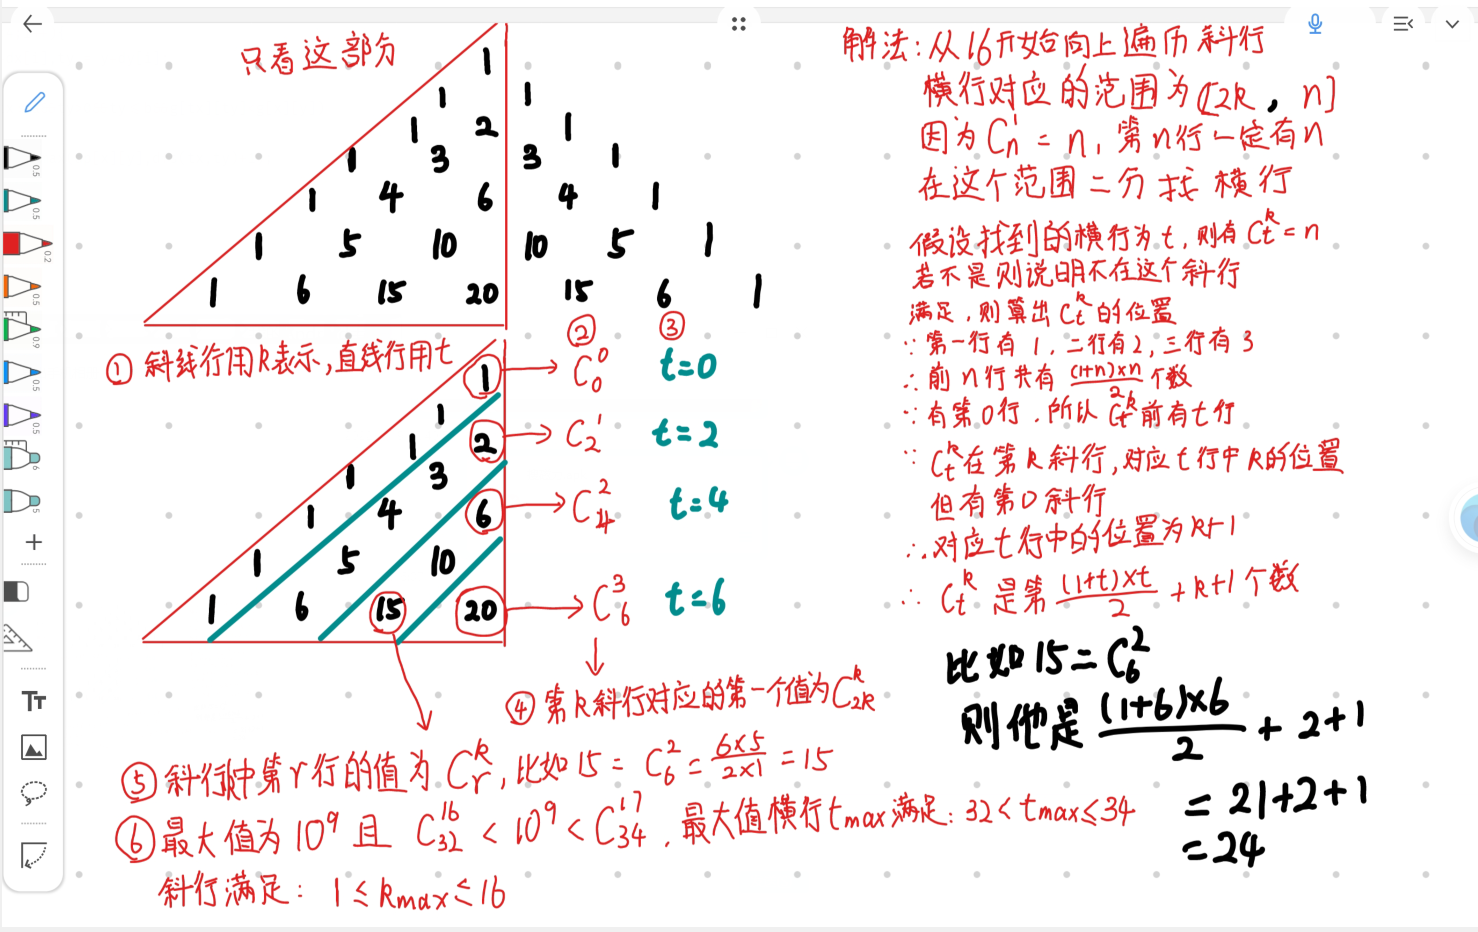 只看这部分
1
1 1
1 2 1
1 3 3 1
1 4 6 4 1
1 5 10 10 5 1
1 6 15 20 15 6 1
② ③
① 斜线行用k表示,直线行用t
1 → C₀⁰ t=0
1
1 2 → C₂¹ t=2
1 3
1 4 6 → C₄² t=4
1 5 10
1 6 15 20 → C₆³ t=6
④ 第k斜行对应的第一个值为C₂ₖᵏ
⑤ 斜行k中第r行的值为Cᵣᵏ,比如15 = C₆² = 6×5/2×1 = 15
⑥ 最大值为10⁹且 C₃₂¹⁶ < 10⁹ < C₃₄¹⁷,最大值横行tmax满足: 32 < tmax ≤ 34
斜行满足: 1 ≤ kmax ≤ 16
解法: 从16开始向上遍历斜行
横行对应的范围为[2k, n]
因为Cₙ¹ = n, 第n行一定有n
在这个范围二分找横行
假设找到的横行为t,则有Cₜᵏ=n
若不是则说明不在这个斜行
满足,则算出Cₜᵏ的位置
∵ 第一行有1,二行有2,三行有3
∴ 前n行共有(1+n)×n/2个数
∵ 有第0行,所以Cₜᵏ前有t行
∵ Cₜᵏ在第k斜行,对应t行中k的位置
但有第0斜行
∴ 对应t行中的位置为k+1
∴ Cₜᵏ是第(1+t)×t/2+k+1个数
比如15=C₆²
则他是(1+6)×6/2+2+1
=21+2+1
=24
0.5
0.5
0.2
0.5
0.9
0.5
0.5
6
5
Tт